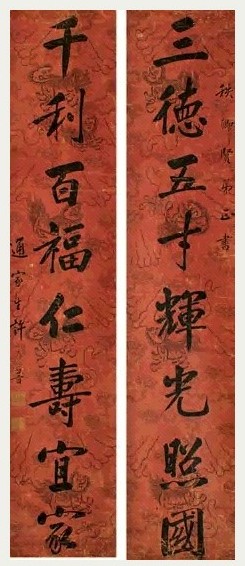 秩卿賢弟正書
三德五才輝光照國
千利百福仁壽宜家
通家生許乃普